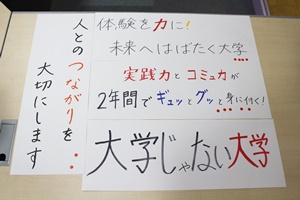 人との
つながりを
大切にします
体験を力に!
未来へはばたく大学
実践力とコミュ力が
2年間でギュッとグッと身に付く!
大学じゃない大学